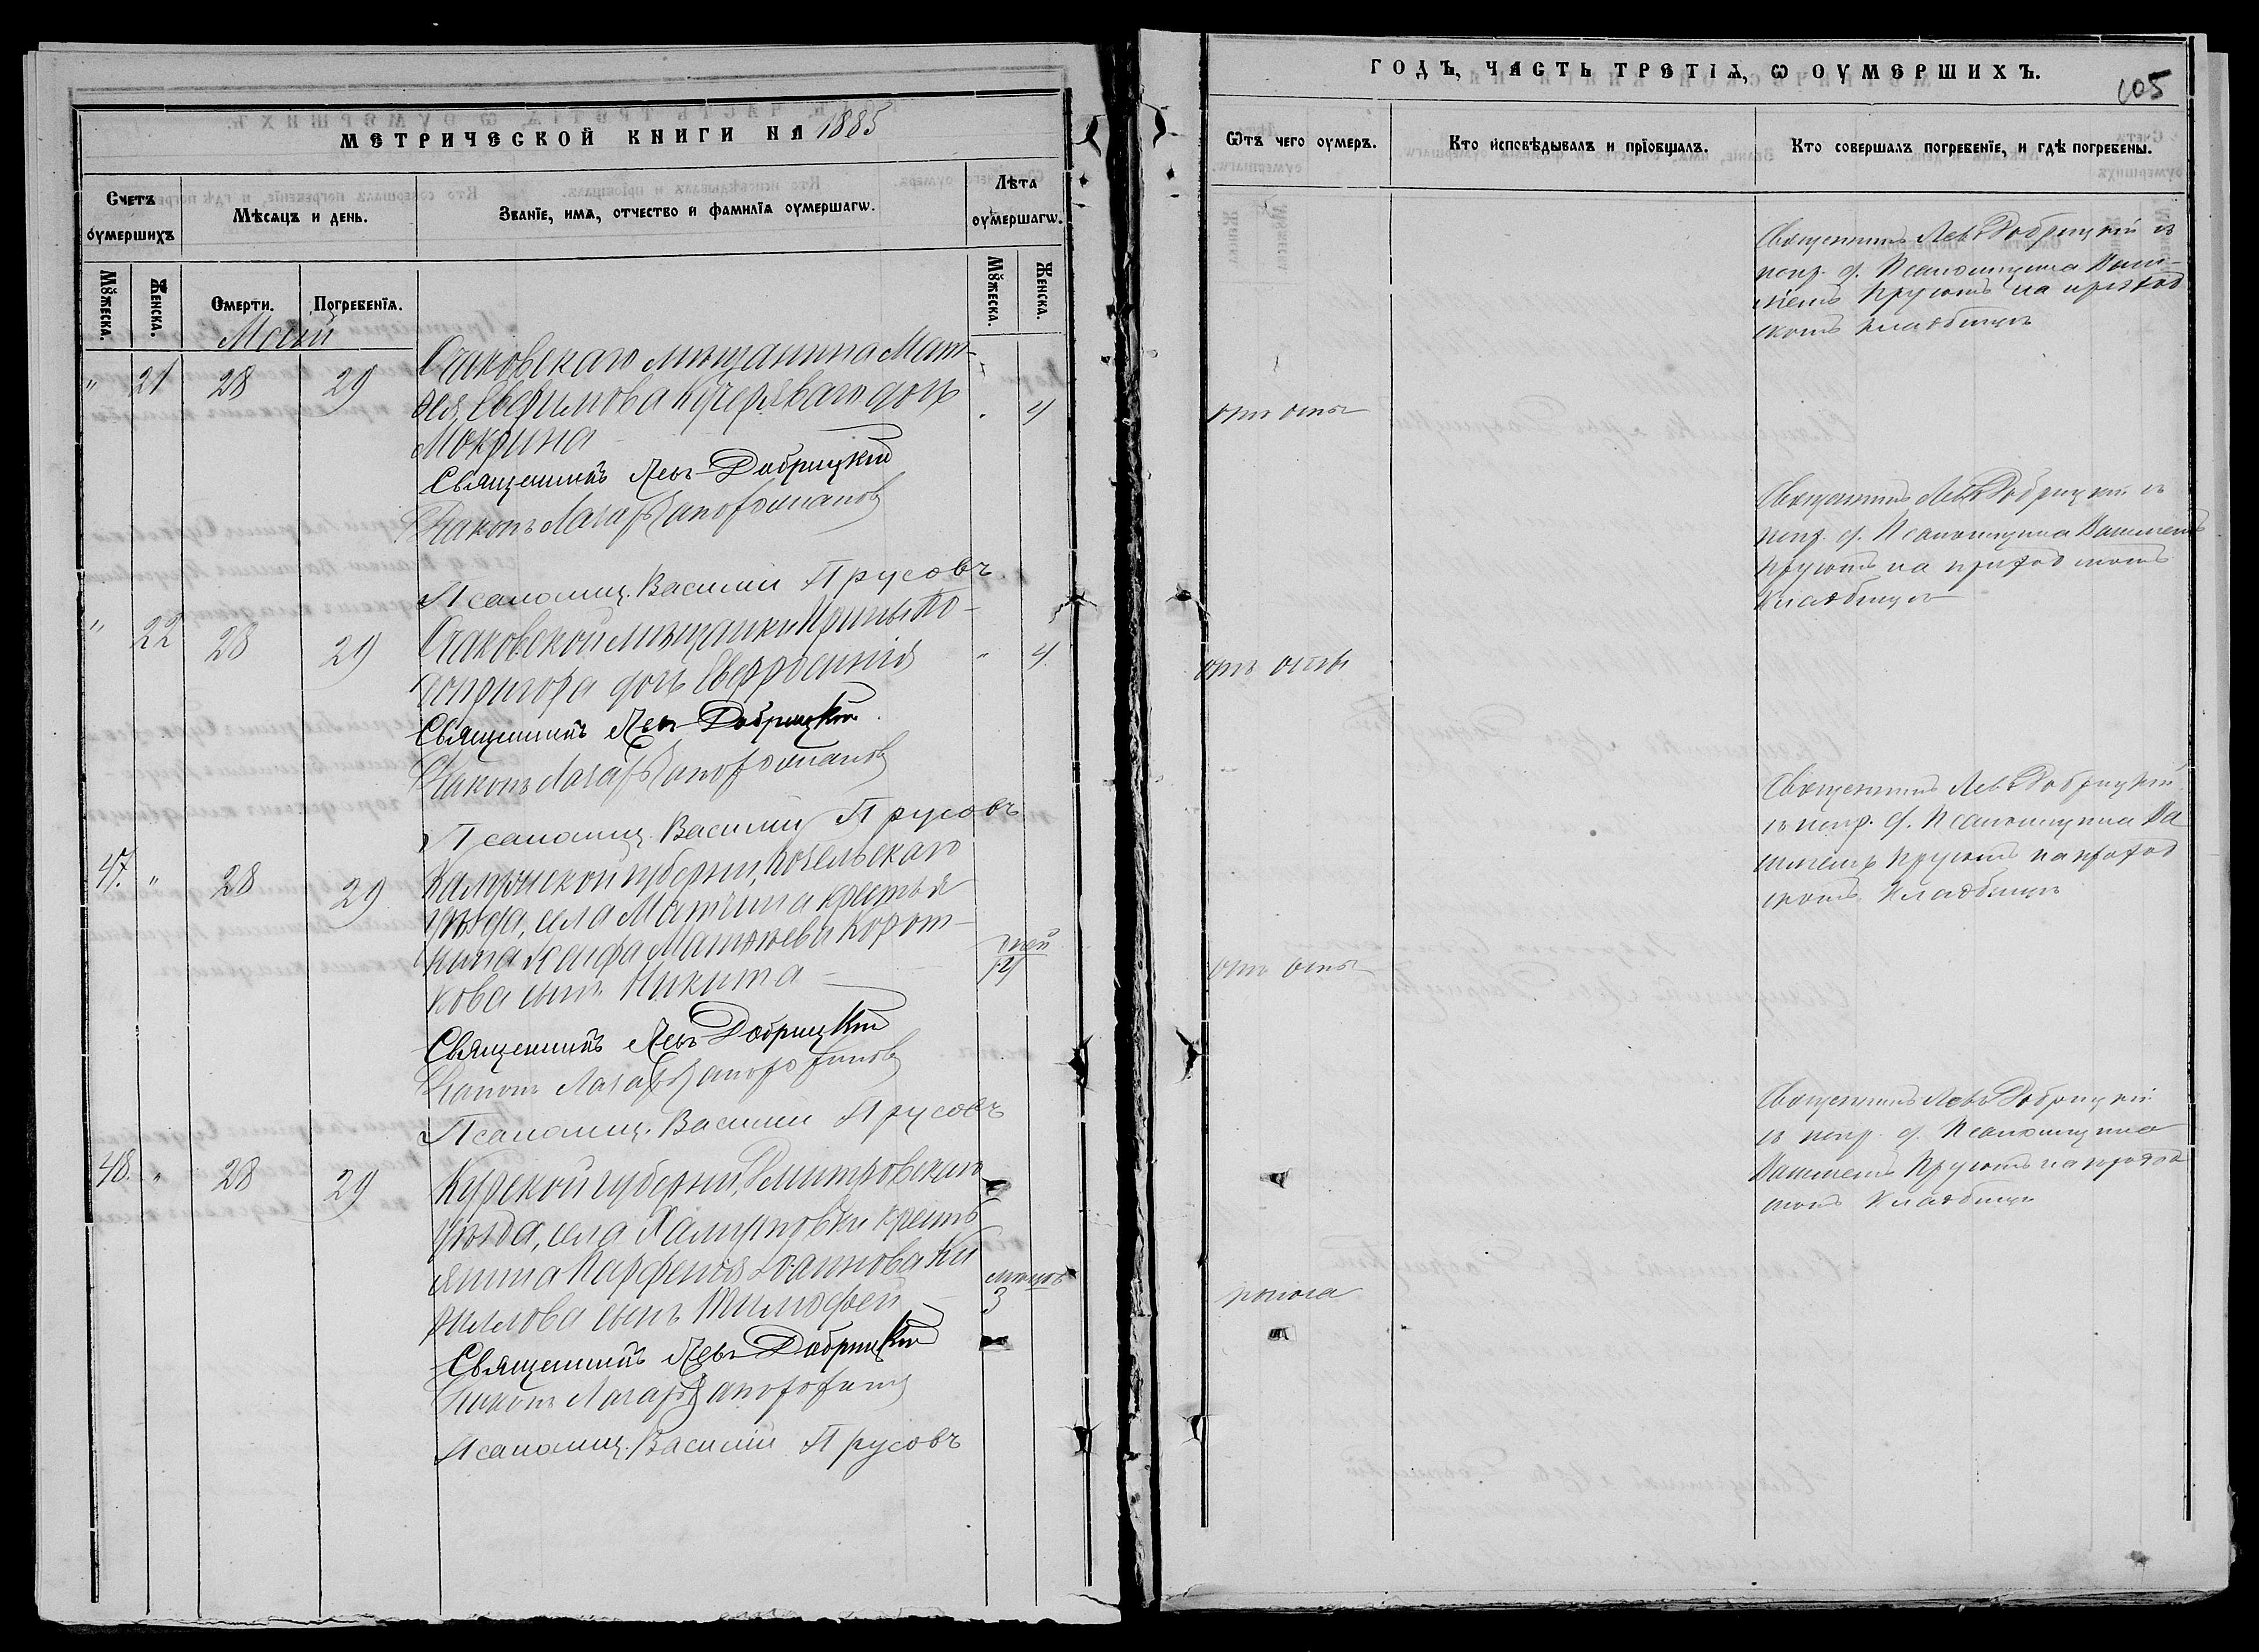 МЕТРИЧЕСКОЙ КНИГИ НА 1885
Счетъ оумершихъ
Мѣсяцъ и день.
Званїе, имя, отчество и фамилїя оумершагѡ.
Лѣта оумершагѡ.
Мꙋжеска.
Женска.
Смерти.
Погребенїя.
Мꙋжеска.
Женска.
Маій
" 21 28 29
Очаковскаго мѣщанина Мат-
ѳея Евфимова Кучерявого дочь
Мокрина
" 4
Священникъ Левъ Добрицкій
Діаконъ Лазарь
Псаломщ. Василій Прусовъ
" 22 28 29
Очаковской мѣщанки Ирины Ко-
допригора дочь Евфросинія
" 4
Священникъ Левъ Добрицкій
Діаконъ Лазарь
Псаломщ. Василій Прусовъ
47. " 28 29
Калужской губерніи, Козельскаго
уѣзда, села Матчина крестья
нина Матвѣева Корот-
кова сынъ Никита
дней
12
Священникъ Левъ Добрицкій
Діаконъ Лазарь
Псаломщ. Василій Прусовъ
48. " 28 29
Курской губерніи, Дмитровскаго
уѣзда, села крестъ
янина Парфенія Іоаннова Ки
риллова сынъ Тимофей
мѣсцовъ
3
Священникъ Левъ Добрицкій
Діаконъ Лазарь
Псаломщ. Василій Прусовъ
ГОДЪ, ЧАСТЬ ТРЕТІЯ, Ѡ ОУМЕРШИХЪ.
105
Ѿтъ чего оумеръ.
Кто исповѣдывалъ и прїобщалъ.
Кто совершалъ погребенїе, и гдѣ погребены.
Священникъ Левъ Добрицкій съ
испр. д. Псаломщика Васи-
ліемъ Прусовъ на приход
скомъ кладбищѣ
отъ оспы
Священникъ Левъ Добрицкій съ
испр. д. Псаломщика Василіемъ
Прусовъ на приход скомъ
Кладбищѣ
отъ оспы
Священникъ Левъ Добрицкій
съ испр. д. Псаломщика Ва
силіемъ Прусовъ на приход
скомъ Кладбищѣ
отъ оспы
Священникъ Левъ Добрицкій
съ испр. д. Псаломщика
Василіемъ Прусовъ на приход
скомъ Кладбищѣ
поноса